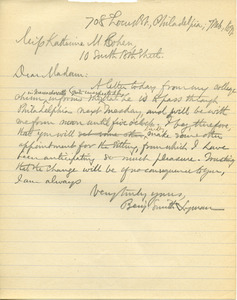 708 Locust St., Philadelphia, 7 Feb., 
Miss Katherine M. Cohen,
10 South 18th Street.
Dear Madam:
A letter today from my college
chum, informs that he is to pass through
Philadelphia next Monday, and will be with
me from noon until five o'clock. I beg therefore
that you will make some other
appointment for the sitting, from which I have
been anticipating so much pleasure. Trusting
that the change will be of no consequence to you,
I am always
Very truly yours,
Benj. Smith Lyman